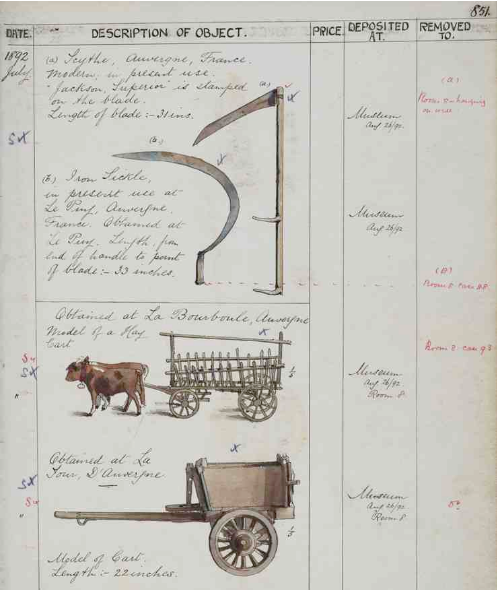 851.
DATE. DESCRIPTION OF OBJECT. PRICE. DEPOSITED AT. REMOVED TO.
1892
July
(a) Scythe, Auvergne, France.
Modern, in present use.
"Jackson, Superior" is stamped
on the blade.
Length of blade:- 31 ins.
(a)
(b)
SX
Museum
Aug 26/92.
(a)
on
(b) Iron Sickle,
in present use at
Le Puy, Auvergne,
France. Obtained at
Le Puy. Length, from
end of handle to point
of blade:- 33 inches.
Museum
Aug 26/92.
Obtained at La Bourboule, Auvergne
Model of a Hay
Cart
SX
"
1/5
Museum
Aug 26/92.
Room 8.
Obtained at La
Tour, D'Auvergne
SX
"
1/5
Museum
Aug 26/92.
Room 8
Model of Cart.
Length:- 22 inches.